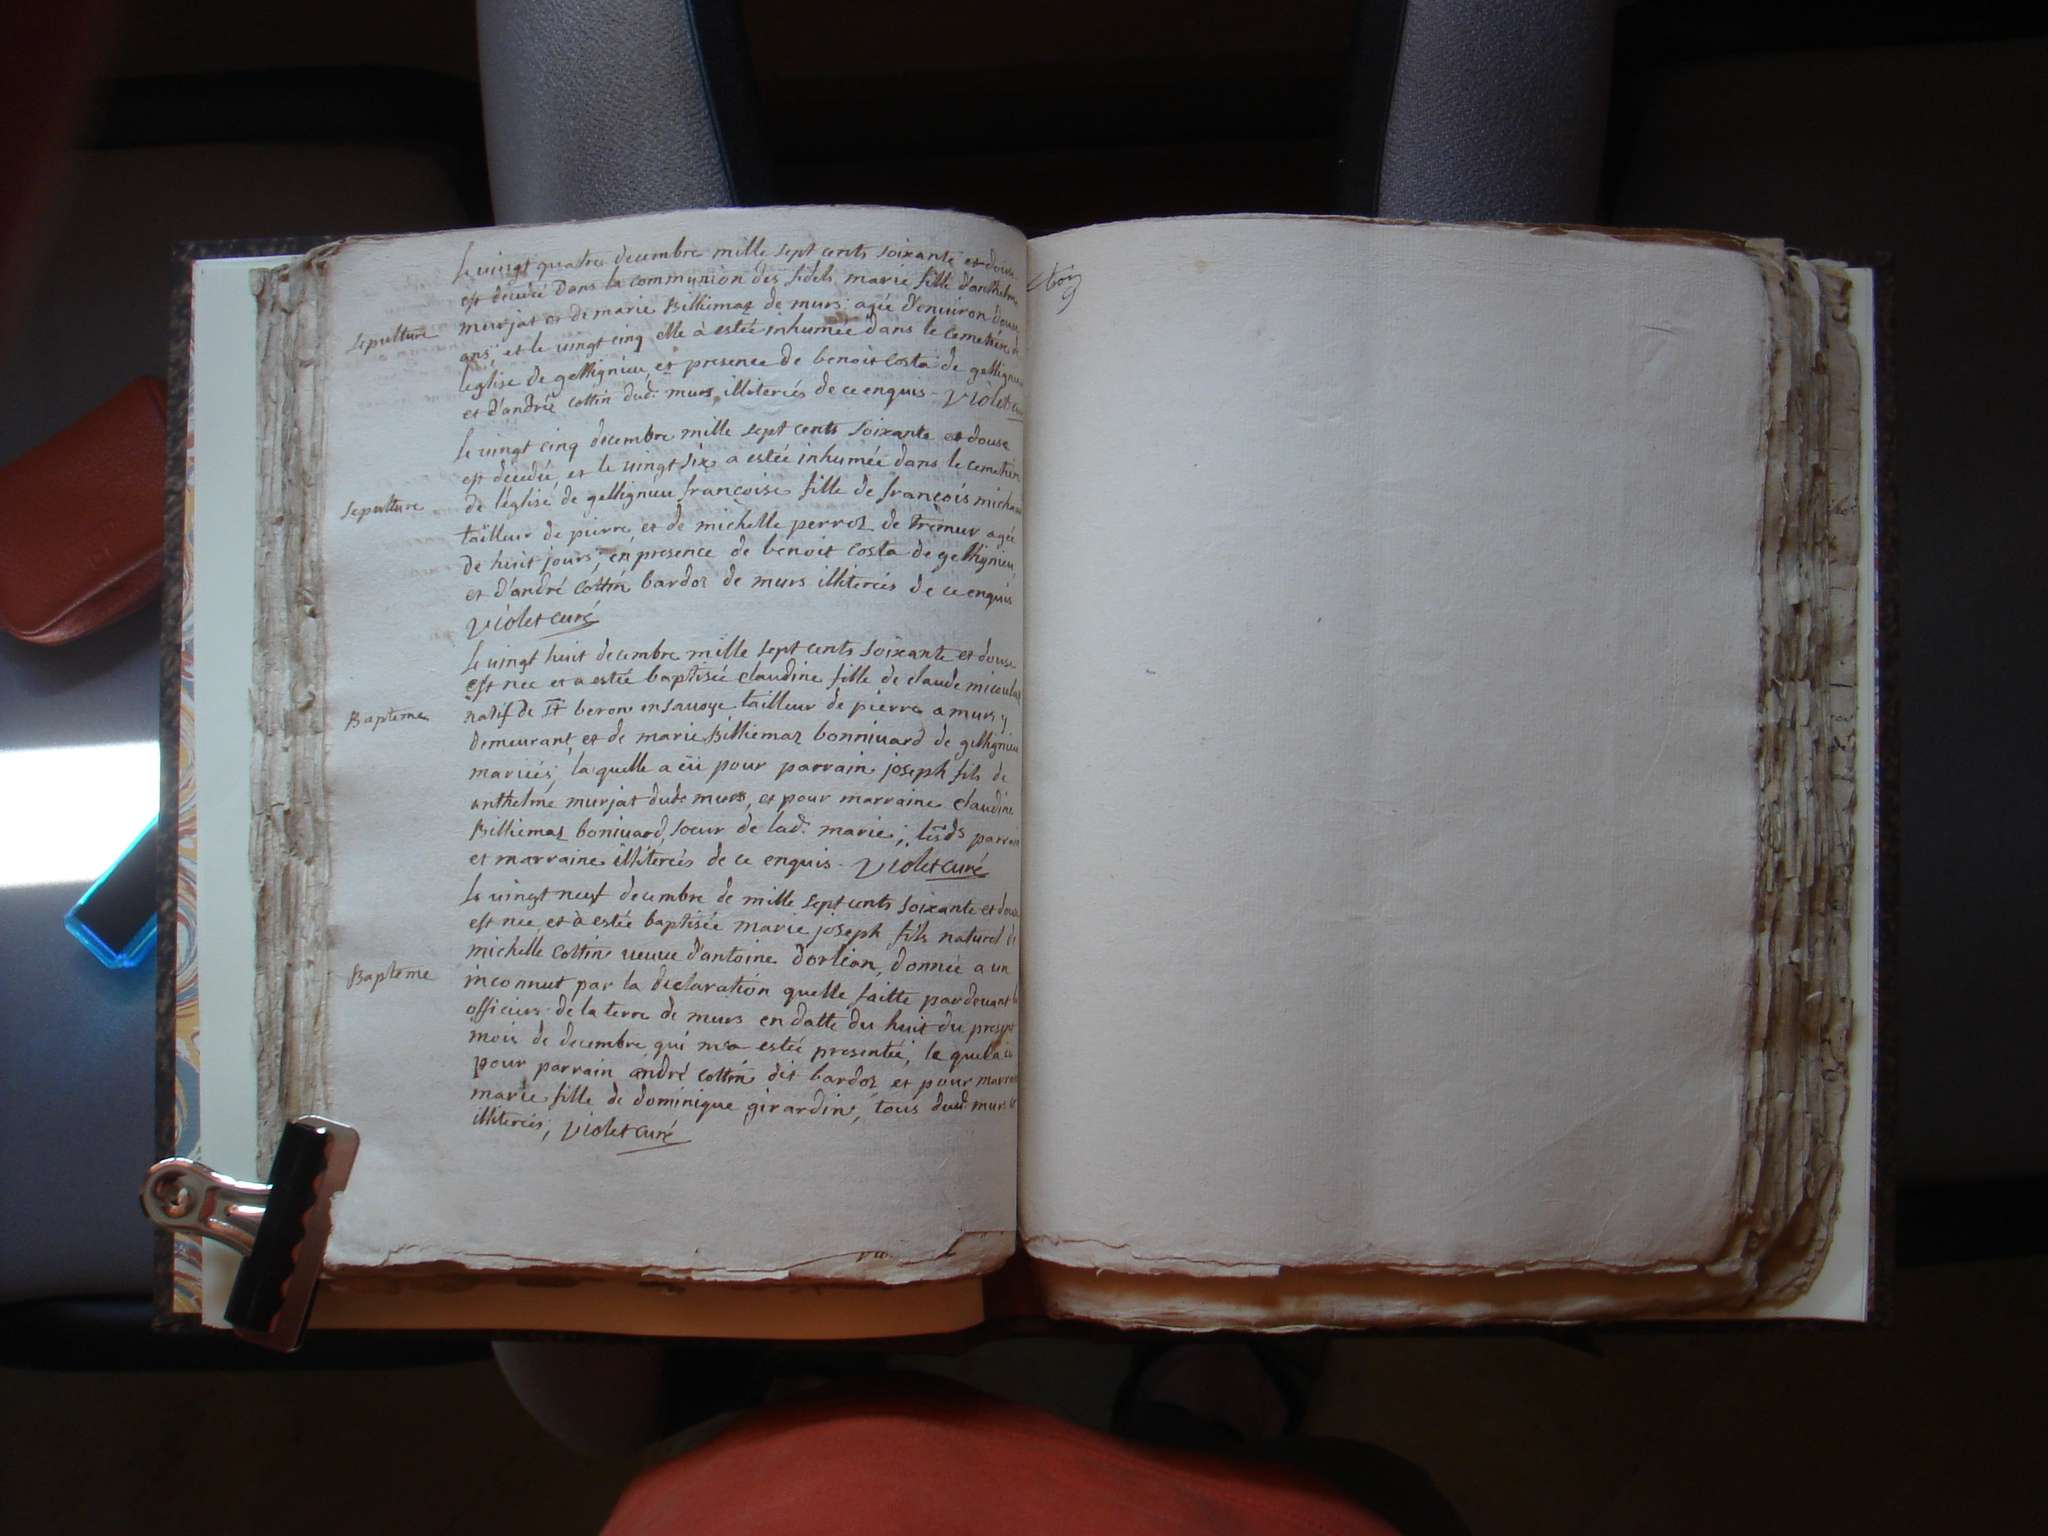 Le vingt quatre decembre mille sept cents soixante et douse
est decedé dans la communion des fidels marie fille d'anthelme
murjat et de marie Billiemaz de murs agée d'environ douse
Sepulture
ans et le vingt cinq elle à estée inhumée dans le cemetiere de
leglise de gellignieu, et presence de benoit Costa de gellignieu
et d'andrée Cottin dud. murs illiterés de ce enquis - Violet curé
Le vingt cinq decembre mille sept cents soixante et douse
est decedée, et le vingt six a estée inhumée dans le cemetiere
Sepulture
de l'église de gellignieu françoise fille de françois michaud
tailleur de pierre et de michelle perroz de tremur agée
de huit jours, en presence de benoit Costa de gellignieu,
et d'andré Cottin bardoz de murs illiterés de ce enquis
Violet curé
Le vingt huit decembre mille sept cents soixante et douse
est née et a estée baptisée claudine fille de claude
Bapteme
natif de St beron en savoye tailleur de pierre a murs y
demeurant, et de marie Billiemaz bonnivard de gellignieu
mariés, la quelle a eü pour parrain joseph fils de
anthelme murjat dud. murs, et pour marraine claudine
Billiemaz bonivard, soeur de lad. marie; lesds parrain
et marraine illiterés de ce enquis - Violet curé
Le vingt neuf decembre de mille sept cents soixante et douse
est née, et à estée baptisée marie joseph fils naturel de
michelle Cottin veuve d'antoine Dorlian, donnée a un
Bapteme
inconnut par la declaration quelle faitte pardevant les
officiers de la terre de murs en datte du huit du present
mois de decembre qui m'a estée presentée, le quel a eü
pour parrain andré Cottin dit bardoz et pour marraine
marie fille de dominique girardin, tous dud. murs
illiterés, Violet curé